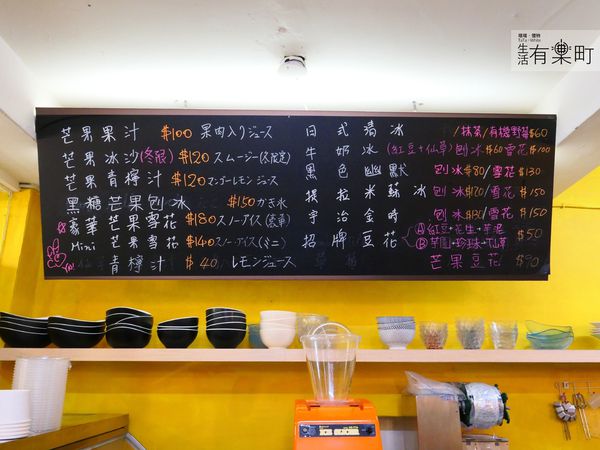 環境‧獨特
生活有樂町
芒果果汁 $100 果肉入りジュース
芒果冰沙(冬限) $120 スムージー(冬限定)
芒果青檸汁 $120 マンゴーレモンジュース
黑糖芒果刨冰 $150 かき氷
豪華芒果雪花 $180 スノーアイス(豪華)
Mini 芒果雪花 $140 スノーアイス(ミニ)
青檸汁 $40 レモンジュース
日式清冰 /抹茶/有機野莓$60
牛奶冰(紅豆+仙草) 刨冰$60 雪花$100
黑色幽默 刨冰$80/雪花$130
提拉米蘇冰 刨冰$120/雪花$150
宇治金時 刨冰$130/雪花$150
招牌豆花 Ⓐ紅豆+花生+芋泥 $50
Ⓑ芋圓+珍珠+仙草
芒果豆花 $90
ICE BOOM